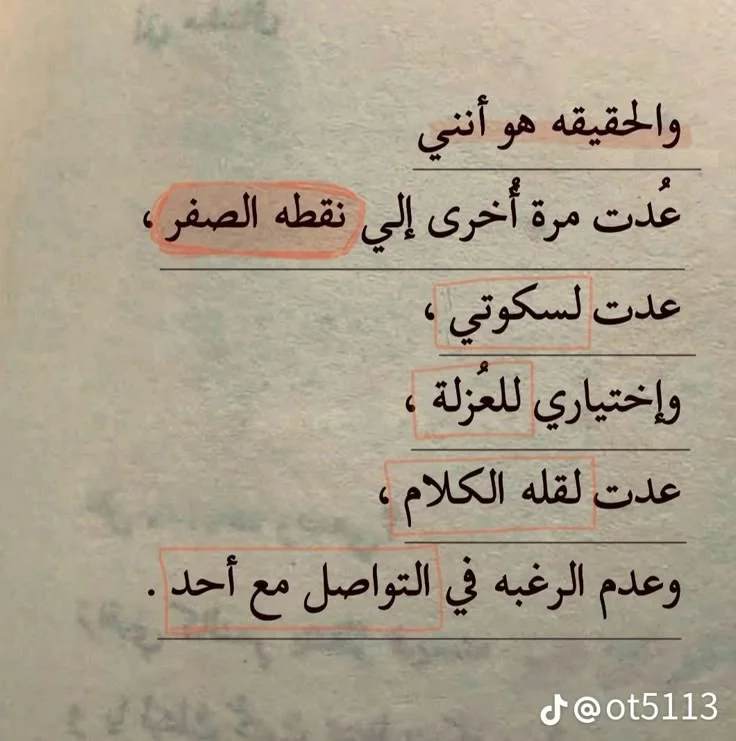 والحقيقه هو أنني
عُدت مرة أُخرى إلي نقطه الصفر ،
عدت لسكوتي ،
وإختياري للعُزلة ،
عدت لقله الكلام ،
وعدم الرغبه في التواصل مع أحد .
@ot5113